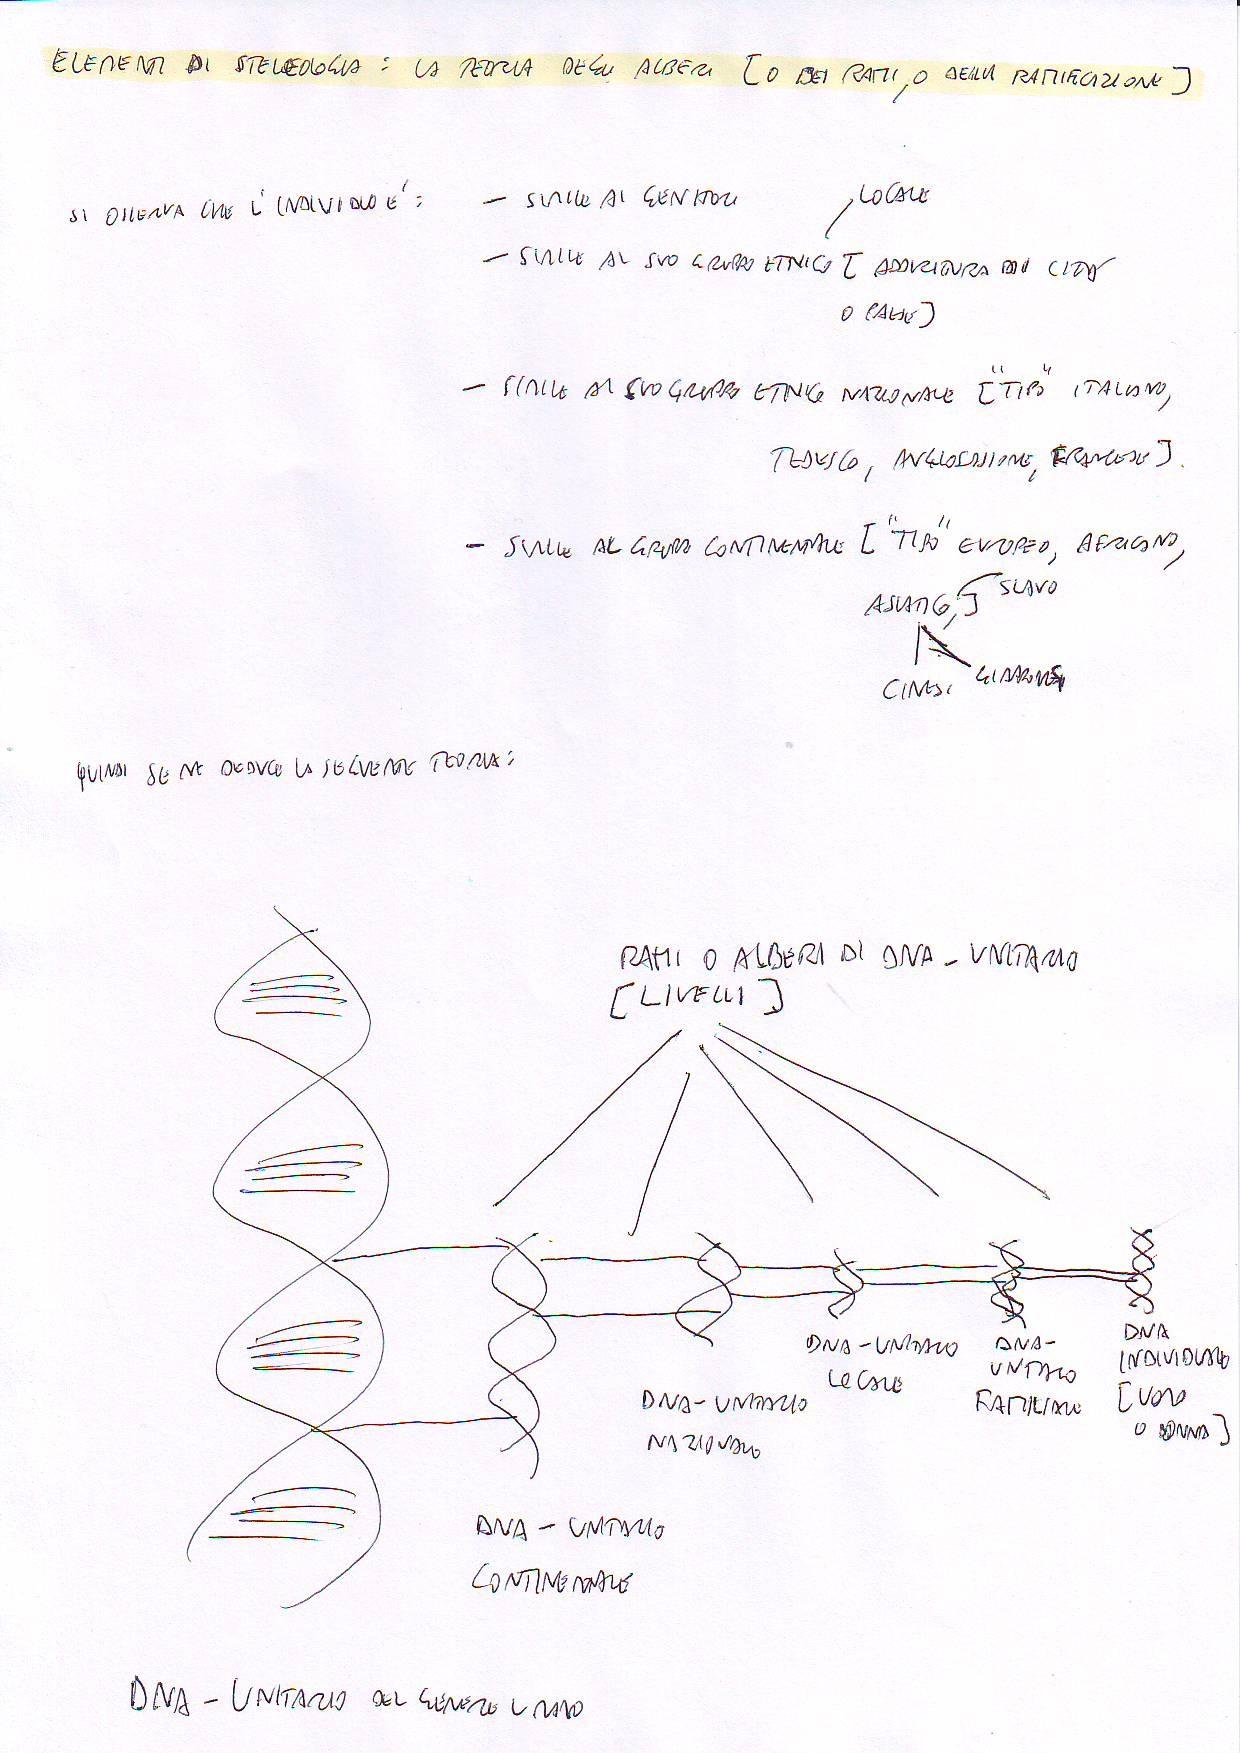 ELEMENTI DI STELEOLOGIA: LA TEORIA DEGLI ALBERI [O DEI RAMI, O DELLA RAMIFICAZIONE]
SI OSSERVA CHE L'INDIVIDUO E':
- SIMILE AI GENITORI
LOCALE
- SIMILE AL SUO GRUPPO ETNICO [ADDIRITTURA DI CITTA'
O PAESE]
- SIMILE AL SUO GRUPPO ETNICO NAZIONALE ["TIPO" ITALIANO,
TEDESCO, ANGLOSASSONE, FRANCESE].
- SIMILE AL GRUPPO CONTINENTALE ["TIPO" EUROPEO, AFRICANO,
ASIATICO,] SLAVO
CINESI GIAPPONESI
QUINDI SE NE DEDUCE LA SEGUENTE TEORIA:
RAMI O ALBERI DI DNA-UNITARIO
[LIVELLI]
DNA-UNITARIO
CONTINENTALE
DNA-UNITARIO
NAZIONALE
DNA-UNITARIO
LOCALE
DNA-
UNITARIO
FAMILIARE
DNA
INDIVIDUALE
[UOMO
O DONNA]
DNA-UNITARIO DEL GENERE UMANO